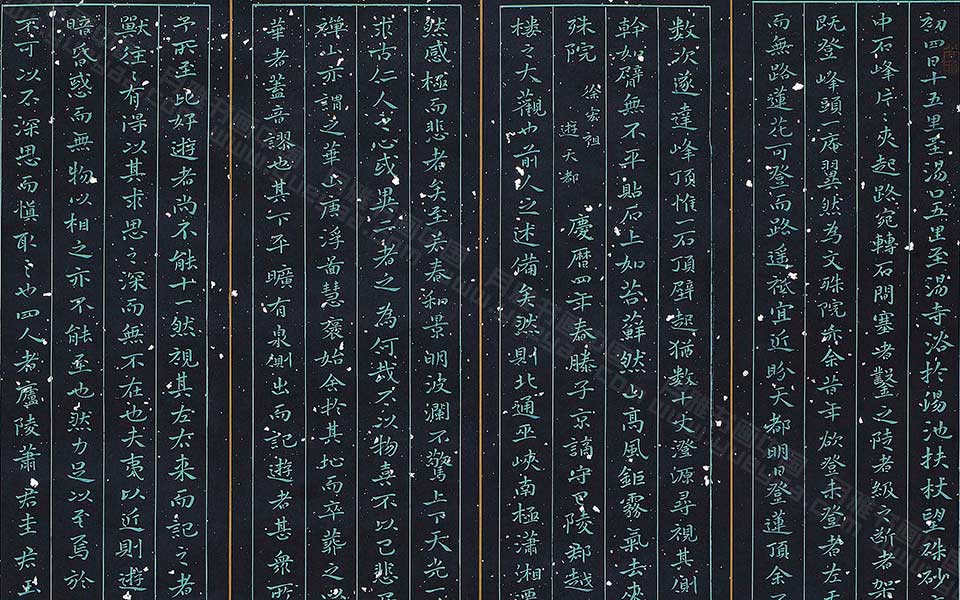 初四日十五里至湯口五里至湯寺浴於湯池扶杖望硃砂
中石峰片〻夾起路宛轉石間塞者鑿之陡者級之斷者架
既登峰頭一庵翼然為文殊院亦余昔年欲登未登者左天
而無路蓮花可登而路遥祗宜近盼天都明日登蓮頂余
數次遂達峰頂惟一石頂壁起猶數十丈澄源尋視其側
幹如臂無不平貼石上如苔蘚然山高風鉅霧氣去來
殊院 徐宏祖 遊天都 慶曆四年春滕子京謫守巴陵郡越
樓之大觀也前人之述備矣然則北通巫峽南極瀟湘遷
然感極而悲者矣至若春和景明波瀾不驚上下天光一
求古仁人之心或異二者之為何哉不以物喜不以己悲居
禪山亦謂之華山唐浮啚慧褒始舍於其址而卒葬之
華者蓋音謬也其下平曠有泉側出而記遊者甚衆所
予所至比好遊者尚不能十一然視其左右來而記之者
獸往〻有得以其求思之深而無不在也夫夷以近則遊
暗昏惑而無物以相之亦不能至也然力足以至焉於
不可以不深思而慎取之也四人者廬陵蕭君圭君玉